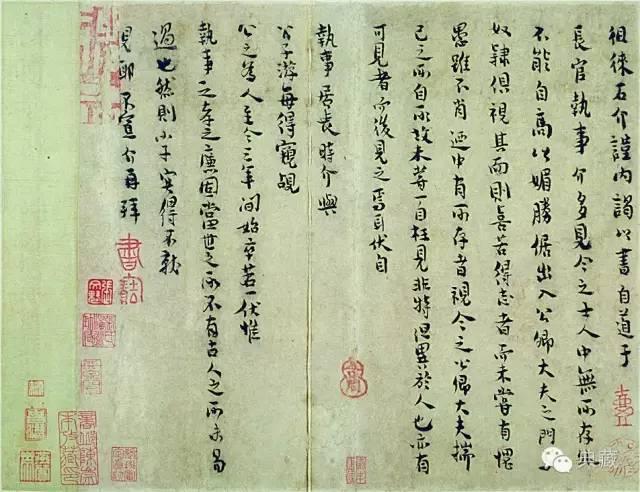 徂徕石介謹內謁以書自道于
長官執事介多見今之士人中無所存
不能自高以媚勝倨出入公卿大夫之門
奴隸俱視其面則喜若得志者而未嘗有愧
愚雖不肖迺中有所存者視今之公卿大夫揣
己之所自所故未嘗一自枉見非特詭異於人也亦有
可見者而後見之焉耳伏自
執事居長時介與
公子游每得竊覘
公之為人至今三年間始卒若一伏惟
執事之孝之廉固當世之所不有古人之所未易
過也然則小子寔得不就
見耶不宣介再拜
典藏